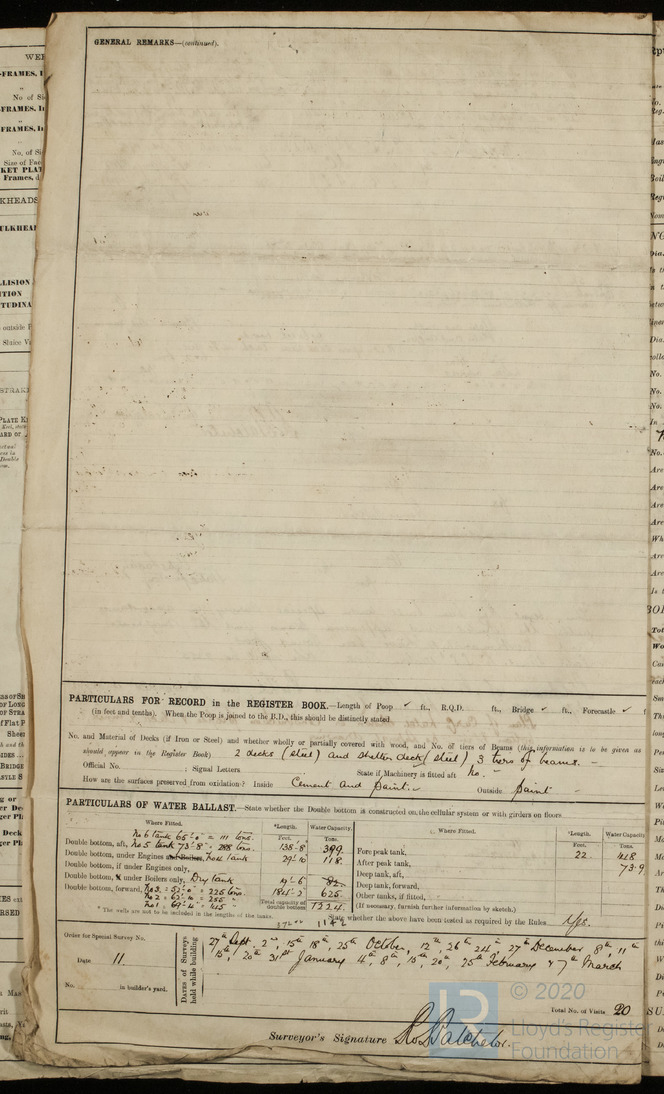 GENERAL REMARKS—(continued).
PARTICULARS FOR RECORD in the REGISTER BOOK.—Length of Poop ✓ ft., R.Q.D. ft., Bridge ✓ ft., Forecastle ✓ f
(in feet and tenths). When the Poop is joined to the B.D., this should be distinctly stated
No. and Material of Decks (if Iron or Steel) and whether wholly or partially covered with wood, and No. of tiers of Beams (this information is to be given as
should appear in the Register Book) 2 decks (steel) and shelter deck (steel) 3 tiers of beams. -
Official No. ; Signal Letters State if Machinery is fitted aft No. -
How are the surfaces preserved from oxidation? Inside Cement and Paint. Outside Paint
PARTICULARS OF WATER BALLAST.—State whether the Double bottom is constructed on the cellular system or with girders on floors
Where Fitted. *Length. Water Capacity. Where Fitted. *Length. Water Capacity
Feet. Tons. Feet. Tons.
No 6 tank 65'-0" = 111 tons.
Double bottom, aft, No 5 tank 73'-8" = 288 tons. 138-8 399. Fore peak tank, 22
Double bottom, under Engines and Boilers, No 4 tank 29'-10 118. After peak tank, 73.9
Double bottom, if under Engines only, Deep tank, aft,
Double bottom, if under Boilers only, Dry tank 19'-6 82. Deep tank, forward,
Double bottom, forward, No 3 = 52'-0" = 225 tons 184'-2 625. Other tanks, if fitted,
No 2 = 62'-10" = 255 "
No 1 = 69'-4" = 145 " Total capacity of double bottoms 1224. (If necessary, furnish further information by sketch.)
* The wells are not to be included in the lengths of the tanks. 1142 State whether the above have been tested as required by the Rules Yes.
Order for Special Survey No.
Date 11
No. in builder's yard.
Dates of Surveys held while building
27th Sept. 2nd, 15th 18th, 25th October, 12th, 26th 24th 27th December 8th, 11th
15th, 20th 31st January 4th, 8th, 15th, 20th, 25th February & 7th March
Total No. of Visits 20
Surveyor's Signature
© 2020
Lloyd's Registe
Foundation